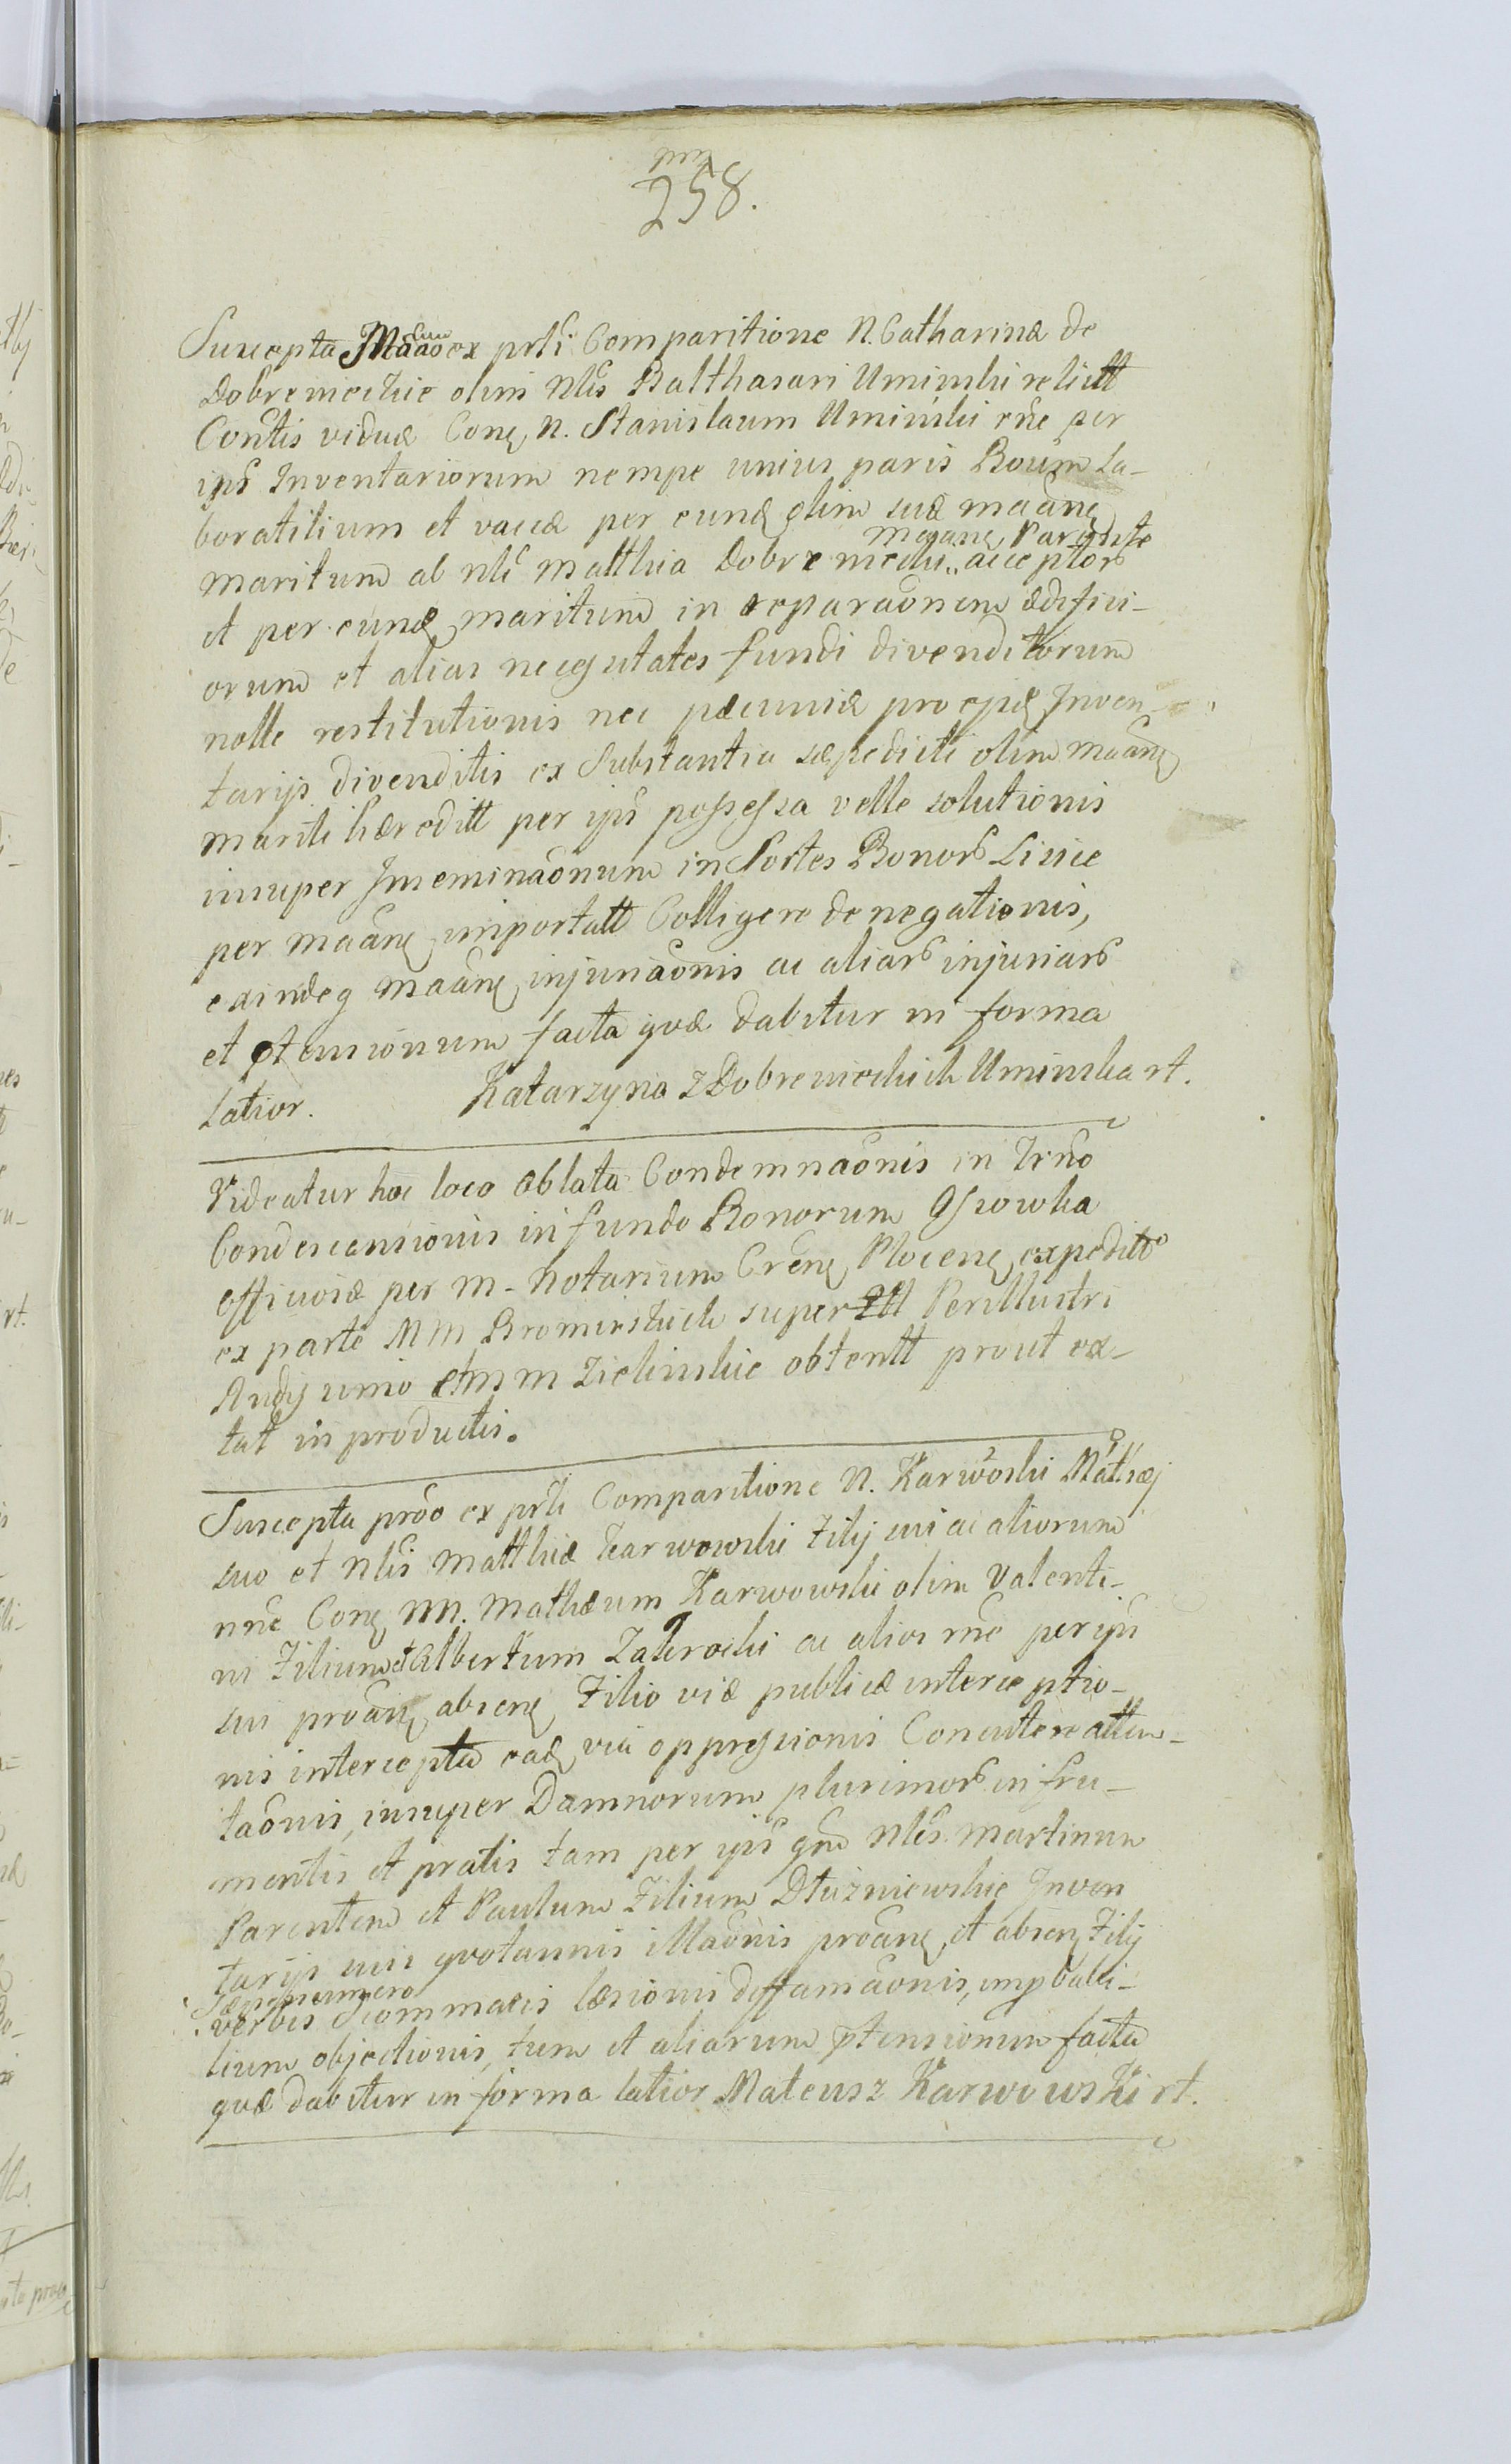 258.
Suscepta Māāō ex prti Comparitione N. Catharinæ de
Dobremieckie olim Nlis Balthasari Uminski relictt
Contis viduæ Conq N. Stanislaum Uminski rne per
ips Inventariorum nempe unius paris Boum La-
boratilium et vaccæ per eunq olim suæ maanq
Maanq Parente
maritum ab Nli Matthia Dobremecki acceptors
et per eunq maritum in reparaonem ædifici-
orum et alias necessitates fundi divenditorum
nolle restitutionis nec pæcuniæ pro ejsq Inven-
tarijs divenditis ex Substantia sæpedicti olim maanq
mariti hæreditt per ips possessa velle solutionis
insuper Imeminaonum in Sortes Bonors Lisice
per maanq importatt Colligere denegationis,
exindeq maanq injuriaonis ac aliars injuriars
et ptensionum facta quæ dabitur in forma
latior. Katarzyna z Dobremieckich Uminska rt.
Videatur hoc loco Oblata Condemnaonis in Trno
Condescensionis in fundo Bonorum Ossowka
officiosæ per M. Notarium Crenq Plocenq expeditt
ex parte MM Bromirskich super Ill Perillustri
Audij unio et MM Zielinskie obtentt prout ex-
tat in productis.
Suscepta prōō ex prti Comparitione N. Karwoski Mathæj
suo et Nlis Matthiæ Karwowski Filij sui ac aliorum
nne Conq NN. Mathæum Karwowski olim Valenti-
ni Filium et Albertum Zaleroski ac alios rne per ips
sui proanq absenq Filio viæ publicæ interceptio-
nis interceptæ eaq via oppressionis Concutere atten-
taonis, insuper Damnorum plurimors in fru-
mentis et pratis tam per ips qm Nles Martinum
Parentem et Paulum Filium Dłużniewskie Inven
tarijs suis quotannis illaonis proanq et absenq Filij
verbis Scommatis læsionis diffamaonis, improbabi-
lium objectionis, tum et aliarum ptensionum facta
quæ dabitur in forma latior Mateusz Karwowski rt.